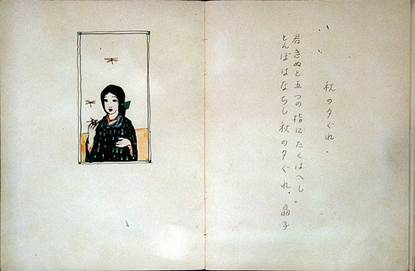 秋の夕ぐれ。
君きぬと五つの指にたくはへし。
とんぼはなちし秋の夕ぐれ。晶子